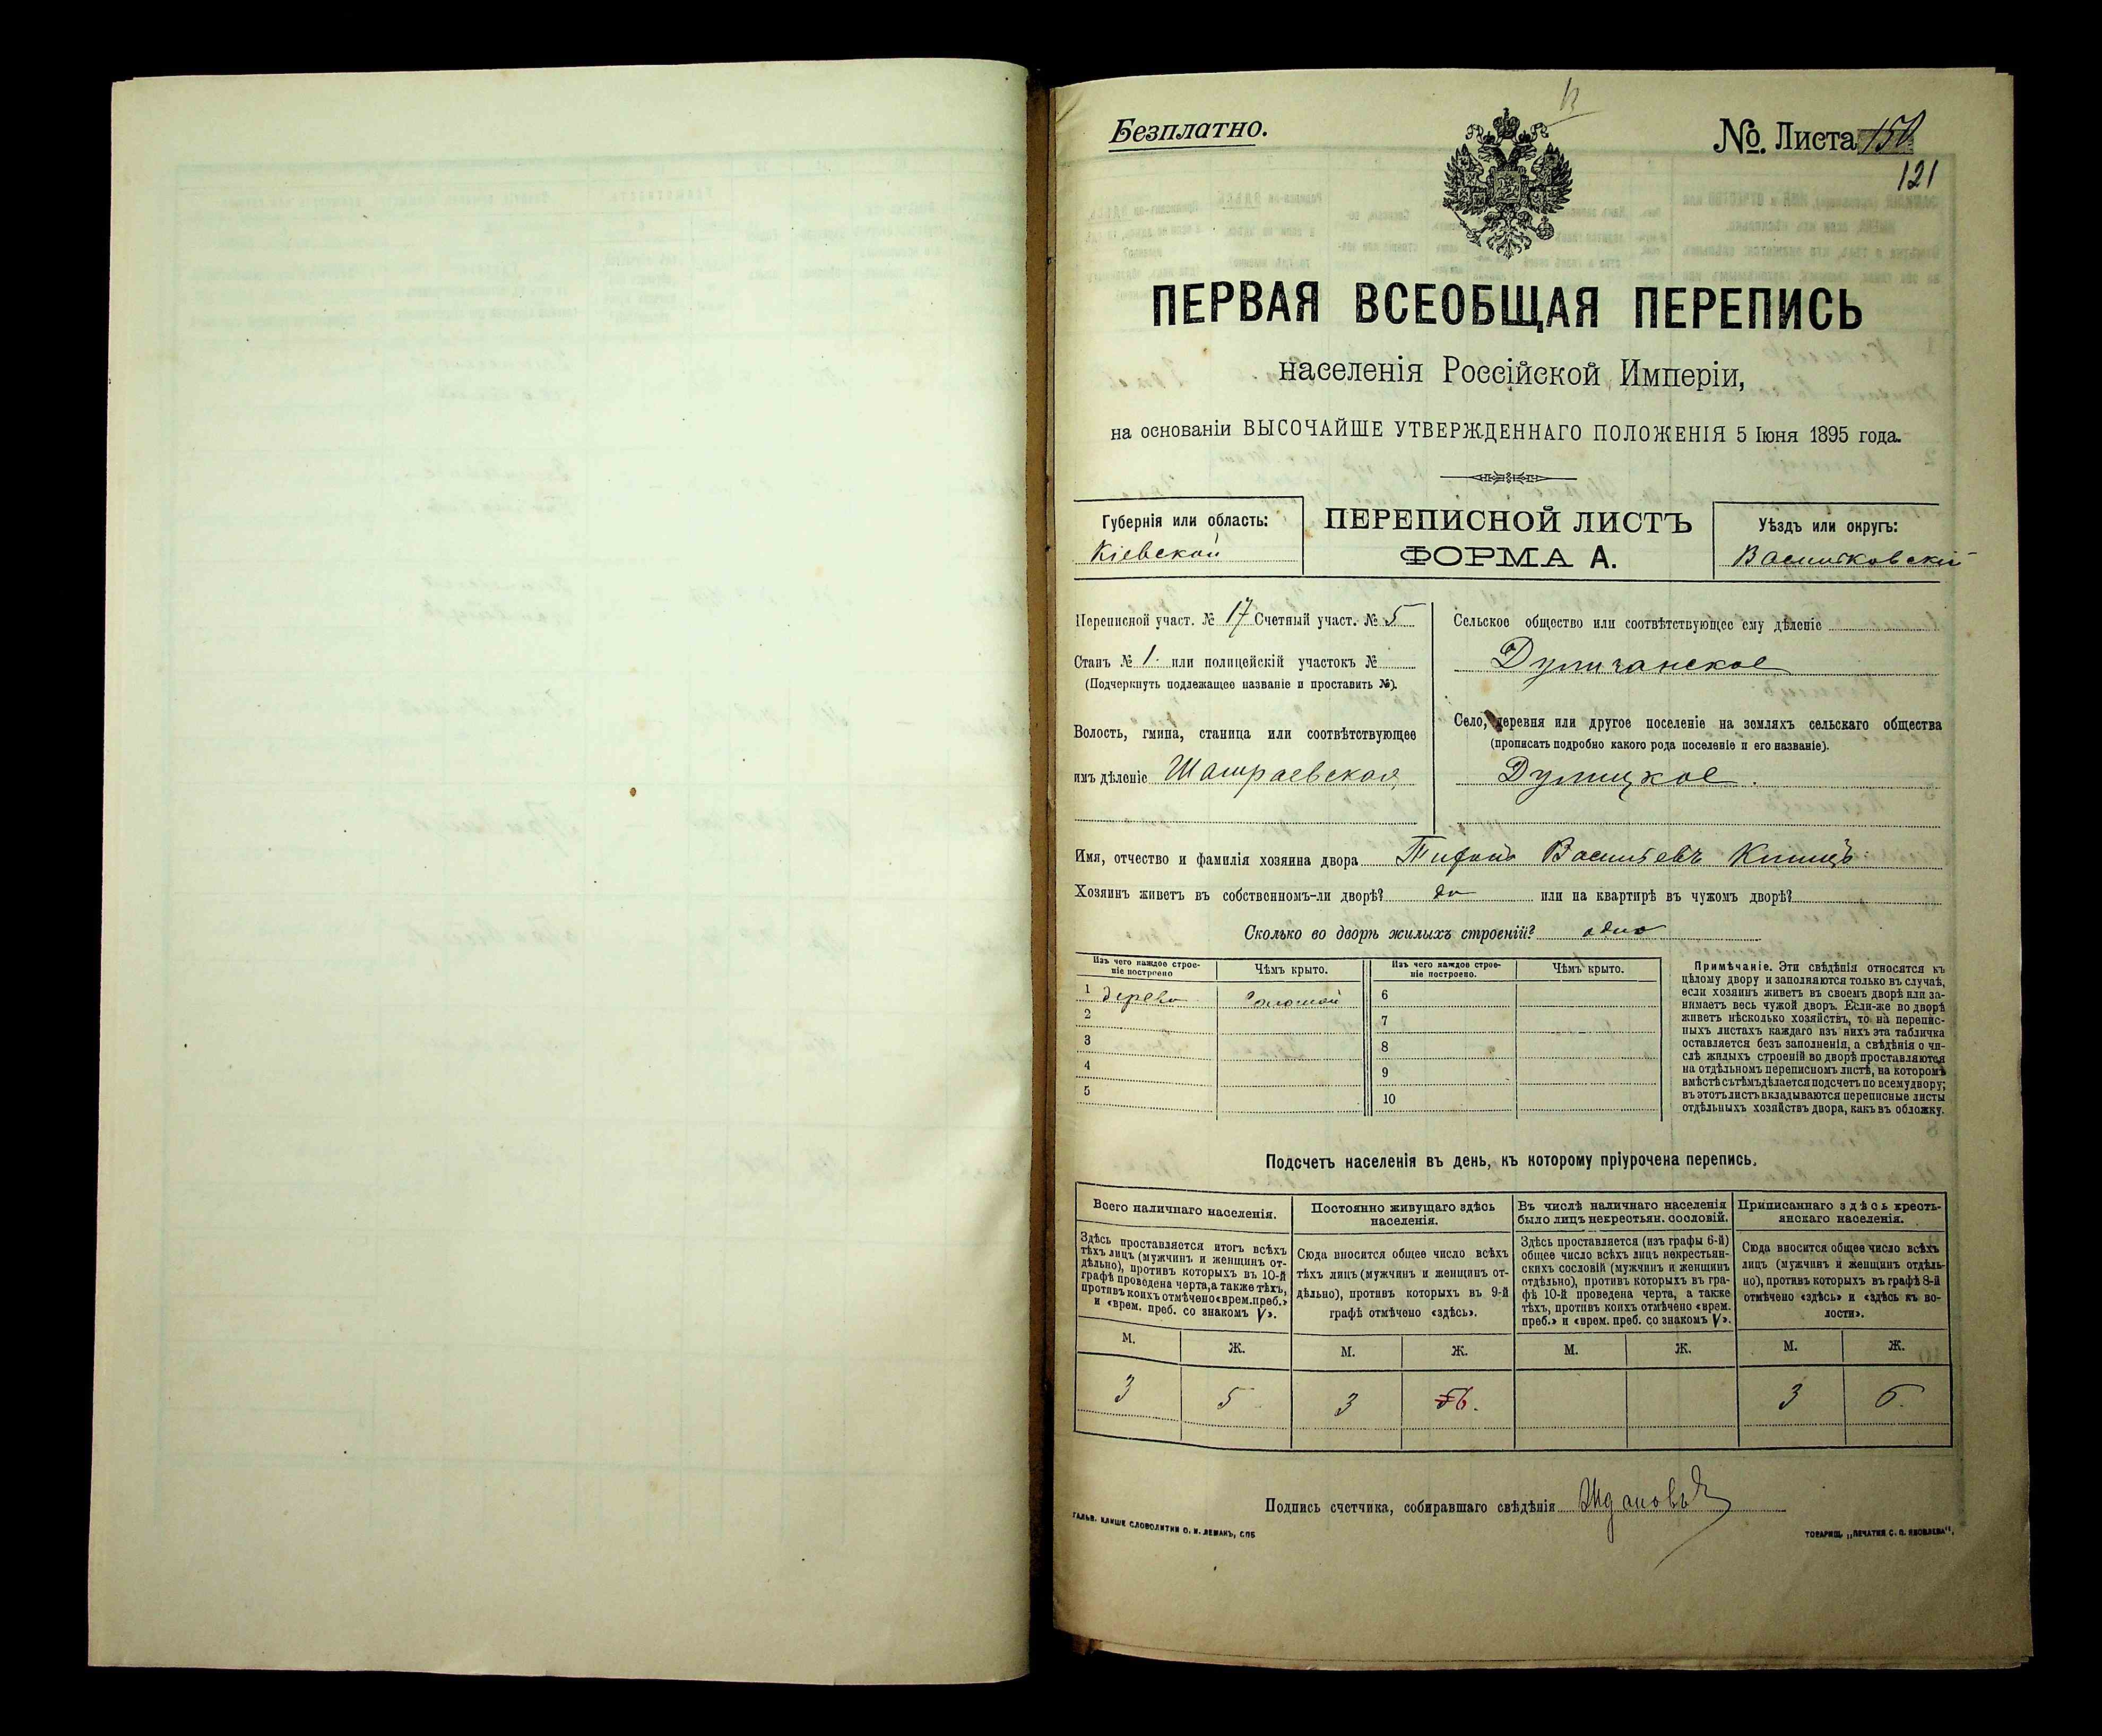 Безплатно.
№ Листа 150
121
ПЕРВАЯ ВСЕОБЩАЯ ПЕРЕПИСЬ
населенія Россійской Имперіи,
на основаніи ВЫСОЧАЙШЕ УТВЕРЖДЕННАГО ПОЛОЖЕНІЯ 5 Іюня 1895 года.
Губернія или область:
Кіевской
ПЕРЕПИСНОЙ ЛИСТЪ
ФОРМА А.
Уѣздъ или округъ:
Васильковскій
Переписной участ. № 17 Счетный участ. № 5
Станъ № 1. или полицейскій участокъ №
(Подчеркнуть подлежащее названіе и проставить №).
Волость, гмина, станица или соотвѣтствующее
имъ дѣленіе Шамраевская
Сельское общество или соотвѣтствующее ему дѣленіе
Дуличанское
Село, деревня или другое поселеніе на земляхъ сельскаго общества
(прописать подробно какого рода поселеніе и его названіе).
Дулицкое.
Имя, отчество и фамилія хозяина двора Васильевъ
Хозяинъ живетъ въ собственномъ-ли дворѣ? да или на квартирѣ въ чужомъ дворѣ?
Сколько во дворѣ жилыхъ строеній? одно
Изъ чего каждое строе-
ніе построено
Чѣмъ крыто.
Изъ чего каждое строе-
ніе построено.
Чѣмъ крыто.
1 дерево соломой
2
3
4
5
6
7
8
9
10
Примѣчаніе. Эти свѣдѣнія относятся къ
цѣлому двору и заполняются только въ случаѣ,
если хозяинъ живетъ въ своемъ дворѣ или за-
нимаетъ весь чужой дворъ. Если-же во дворѣ
живетъ нѣсколько хозяйствъ, то на перепис-
ныхъ листахъ каждаго изъ нихъ эта табличка
оставляется безъ заполненія, а свѣдѣнія о чи-
слѣ жилыхъ строеній во дворѣ проставляются
на отдѣльномъ переписномъ листѣ, на которомъ
вмѣстѣ съ тѣмъ дѣлается подсчетъ по всему двору;
въ этотъ листъ вкладываются переписные листы
отдѣльныхъ хозяйствъ двора, какъ въ обложку.
Подсчетъ населенія въ день, къ которому пріурочена перепись.
Всего наличнаго населенія.
Здѣсь проставляется итогъ всѣхъ
тѣхъ лицъ (мужчинъ и женщинъ от-
дѣльно), противъ которыхъ въ 10-й
графѣ проведена черта, а также тѣхъ,
противъ коихъ отмѣчено «врем. преб.»
и «врем. преб. со знакомъ V».
Постоянно живущаго здѣсь
населенія.
Сюда вносится общее число всѣхъ
тѣхъ лицъ (мужчинъ и женщинъ от-
дѣльно), противъ которыхъ въ 9-й
графѣ отмѣчено «здѣсь».
Въ числѣ наличнаго населенія
было лицъ некрестьян. сословій.
Здѣсь проставляется (изъ графы 6-й)
общее число всѣхъ лицъ некрестьян-
скихъ сословій (мужчинъ и женщинъ
отдѣльно), противъ которыхъ въ гра-
фѣ 10-й проведена черта, а также
тѣхъ, противъ коихъ отмѣчено «врем.
преб.» и «врем. преб. со знакомъ V».
Приписаннаго здѣсь кресть-
янскаго населенія.
Сюда вносится общее число всѣхъ
лицъ (мужчинъ и женщинъ отдѣль-
но), противъ которыхъ въ графѣ 8-й
отмѣчено «здѣсь» и «здѣсь къ во-
лости».
М. Ж. М. Ж. М. Ж. М. Ж.
3 5 3 5 6. 3 6.
Подпись счетчика, собиравшаго свѣдѣнія
ГАЛЬВ. КЛИШЕ СЛОВОЛИТНИ О. И. ЛЕМАНЪ, СПБ
ТОВАРИЩ. „ПЕЧАТНЯ С. П. ЯКОВЛЕВА".